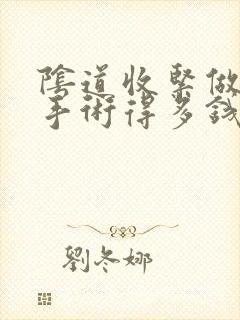 陰道收緊做
手術得多錢
劉冬娜